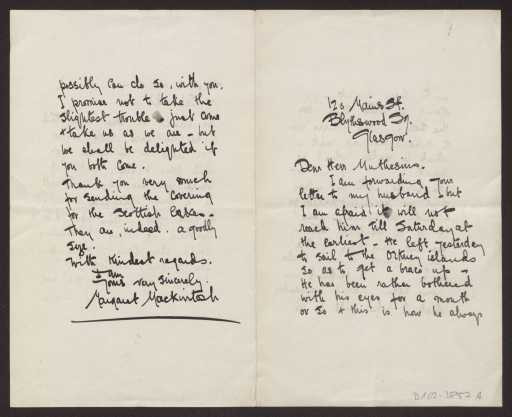 120 Mains St.
Blythswood Sq.
Glasgow.
Dear Herr Muthesius.
I am forwarding your
letter to my husband, but
I am afraid it will not
reach him till Saturday at
the earliest - He left yesterday
to sail to the Orkney islands
so as to get a brace up -
He has been rather bothered
with his eyes for a month
or so & this is how he always
possibly can do so, with you.
I promise not to take the
slightest trouble just come
& take us as we are - but
we shall be delighted if
you both come.
Thank you very much
for sending the covering
for the Scottish
They are, indeed, a goodly
size.
With kindest regards.
I am
Yours very sincerely.
Margaret Mackintosh